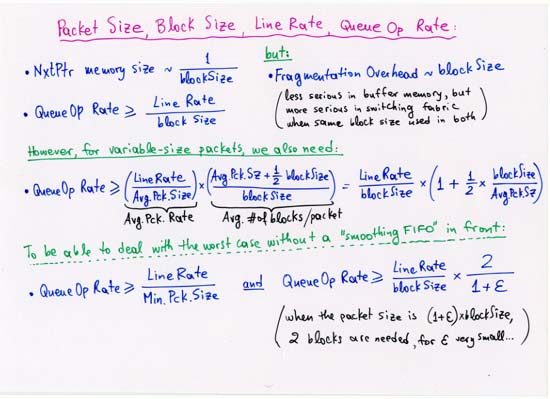 Packet Size, Block Size, Line Rate, Queue Op Rate:
• NxtPtr memory size ~ 1/blockSize
but:
• Fragmentation Overhead ~ blockSize
(less serious in buffer memory, but
more serious in switching fabric
when same block size used in both)
• QueueOp Rate ≥ Line Rate/block Size
However, for variable-size packets, we also need:
• QueueOp Rate ≥ (LineRate/Avg.Pck.Size) × (Avg.Pck.Sz + 1/2 blockSize/blockSize) = LineRate/blockSize × (1 + 1/2 × blockSize/AvgPckSz)
Avg.Pck.Rate
Avg. # of blocks/packet
To be able to deal with the worst case without a "smoothing FIFO" in front:
• QueueOp Rate ≥ Line Rate/Min.Pck.Size and QueueOp Rate ≥ LineRate/blockSize × 2/1+ε
(when the packet size is (1+ε)×blockSize,
2 blocks are needed, for ε very small...)